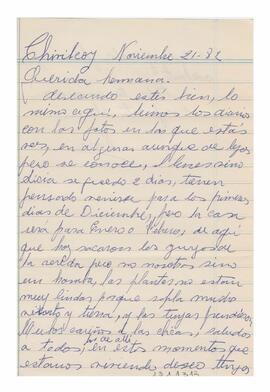 Chivilcoy Noviembre 21-82
Querida hermana:
deseando estés bien, lo
mismo aquí, vimos los diarios
con las fotos en las que estás
vos, en algunas aunque de lejos
pero se conoce,
días se quedó 2 días, tienen
pensado venirse para los primeros
días de Diciembre, pero la casa
era para Enero o Febrero, de aquí
que hoy sacaron los yuyos de
la vereda pero no nosotros sino
un hombre, las plantas no están
muy lindas porque sopla mucho
viento y tierra, y las tuyas
Muchos cariños de las chicas, saludos
a todos, en estos momentos que
estamos viviendo deseo